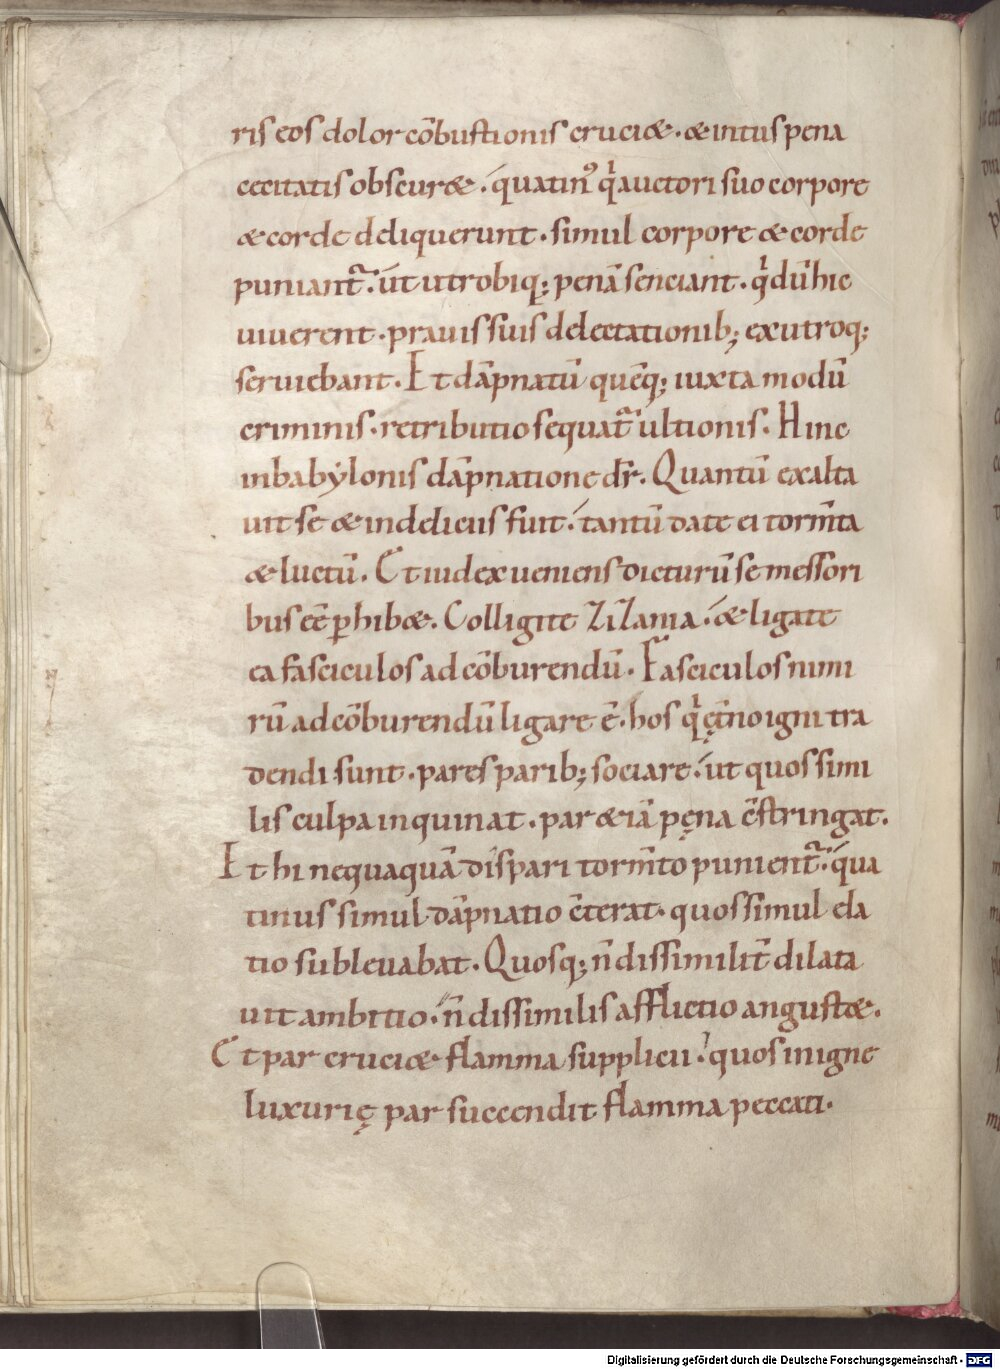 ris eos dolor cōbustionis cruciæ. & intus pena
cecitatis obscuræ. quatin᷒ qͥ auctori suo corpore
& corde deliquerunt. simul corpore & corde
puniant᷑. ut utrobiq; penā senciant. qͥ dū hic
uiuerent. prauis suis delectationib; ex utroq;
seruiebant. Et dāpnatū quēq; iuxta modū
criminis. retributio sequat᷑ ultionis. Hinc
in babẏlonis dāpnatione dr̄. Quantū exalta
uit se & in deliciis fuit. tantū date ei torm̄ta
& luctū. Et iudex ueniens dicturū se messori
bus eē ꝑhibæ. Colligite zizania. & ligate
ea fasciculos ad cōburendū. Fasciculos nimi
rū ad cōburendū ligare ē. hos qͥ ęt̄no igni tra
dendi sunt. pares parib; sociare. ut quos simi
lis culpa inquinat. par &iā pęna c̄stringat.
Et hi nequaquā dispari torm̄to punient᷑. qua
tinus simul dāpnatio c̄terat. quos simul ela
tio subleuabat. Quosq; n̄ dissimilit̄ dilata
uit ambitio. n̄ dissimilis afflictio angustæ.
Et par cruciæ flamma supplicii. quos in igne
luxurię par succendit flamma peccati.
Digitalisierung gefördert durch die Deutsche Forschungsgemeinschaft - DFG